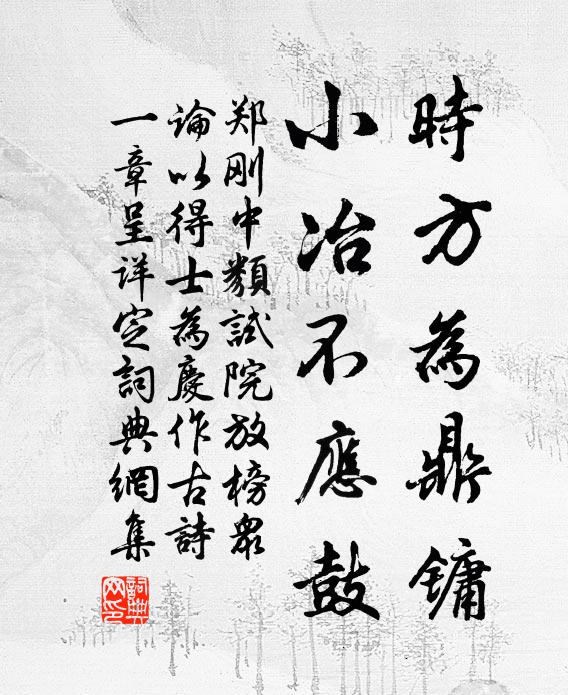 時方為鼎镛
小冶不應鼓
郑刚中類試院放榜眾
論以得士為慶作古詩
一章呈详定詞典網集